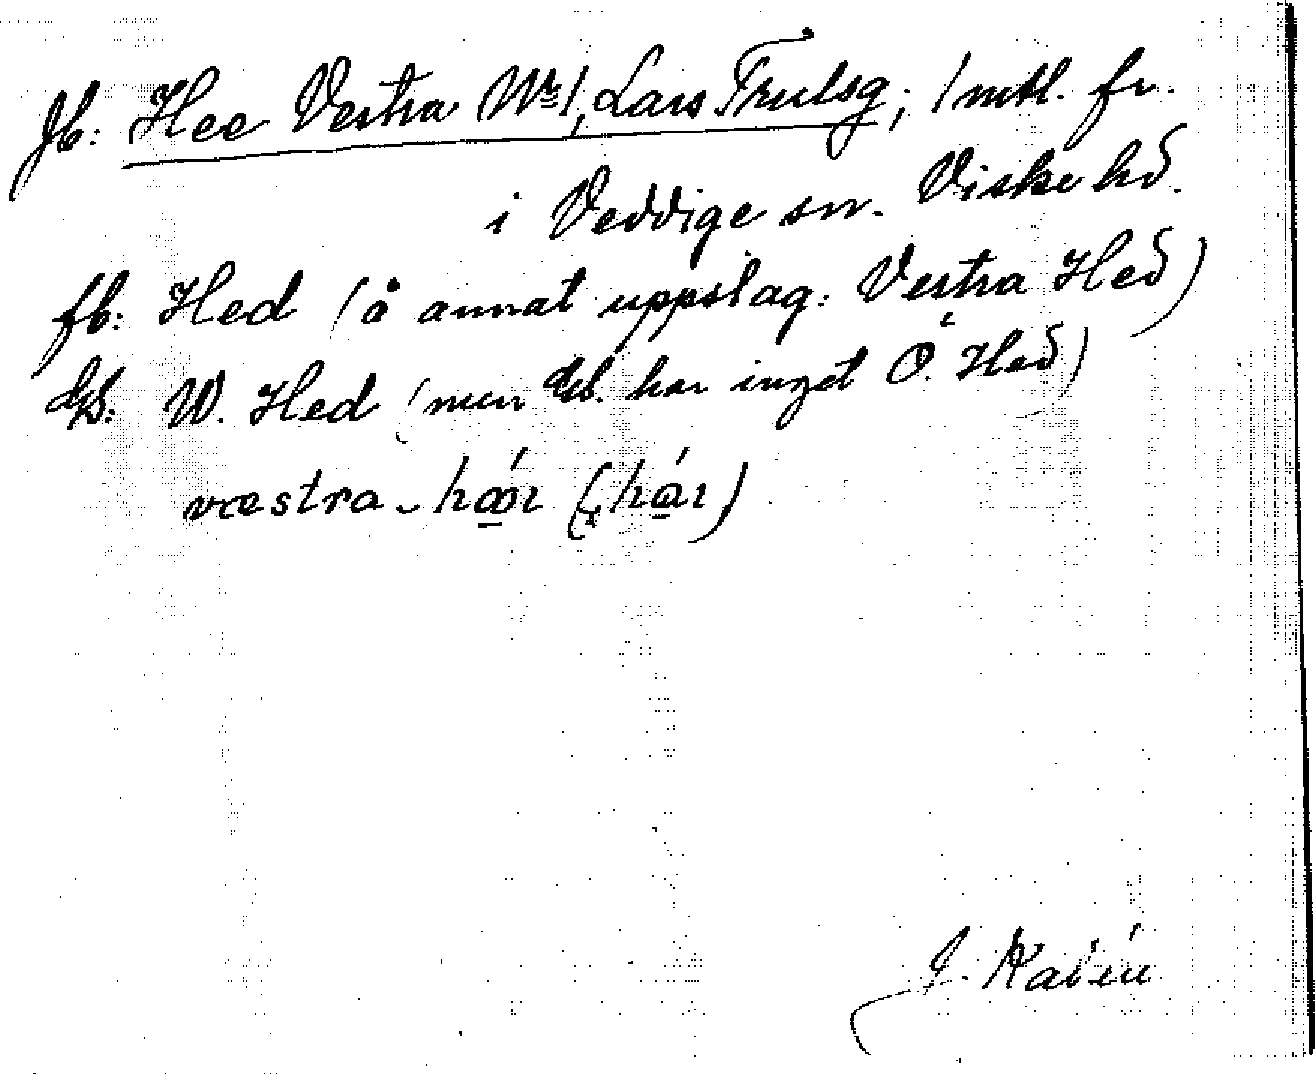 Jb: Hee Vestra No 1, Lars Trulsg; 1 mtl. fr.
i Veddige sn. Viske hd.
fb: Hed (å annat uppslag: Vestra Hed)
W. Hed (men har inget Ö. Hed)
væstra-
J. Kalén